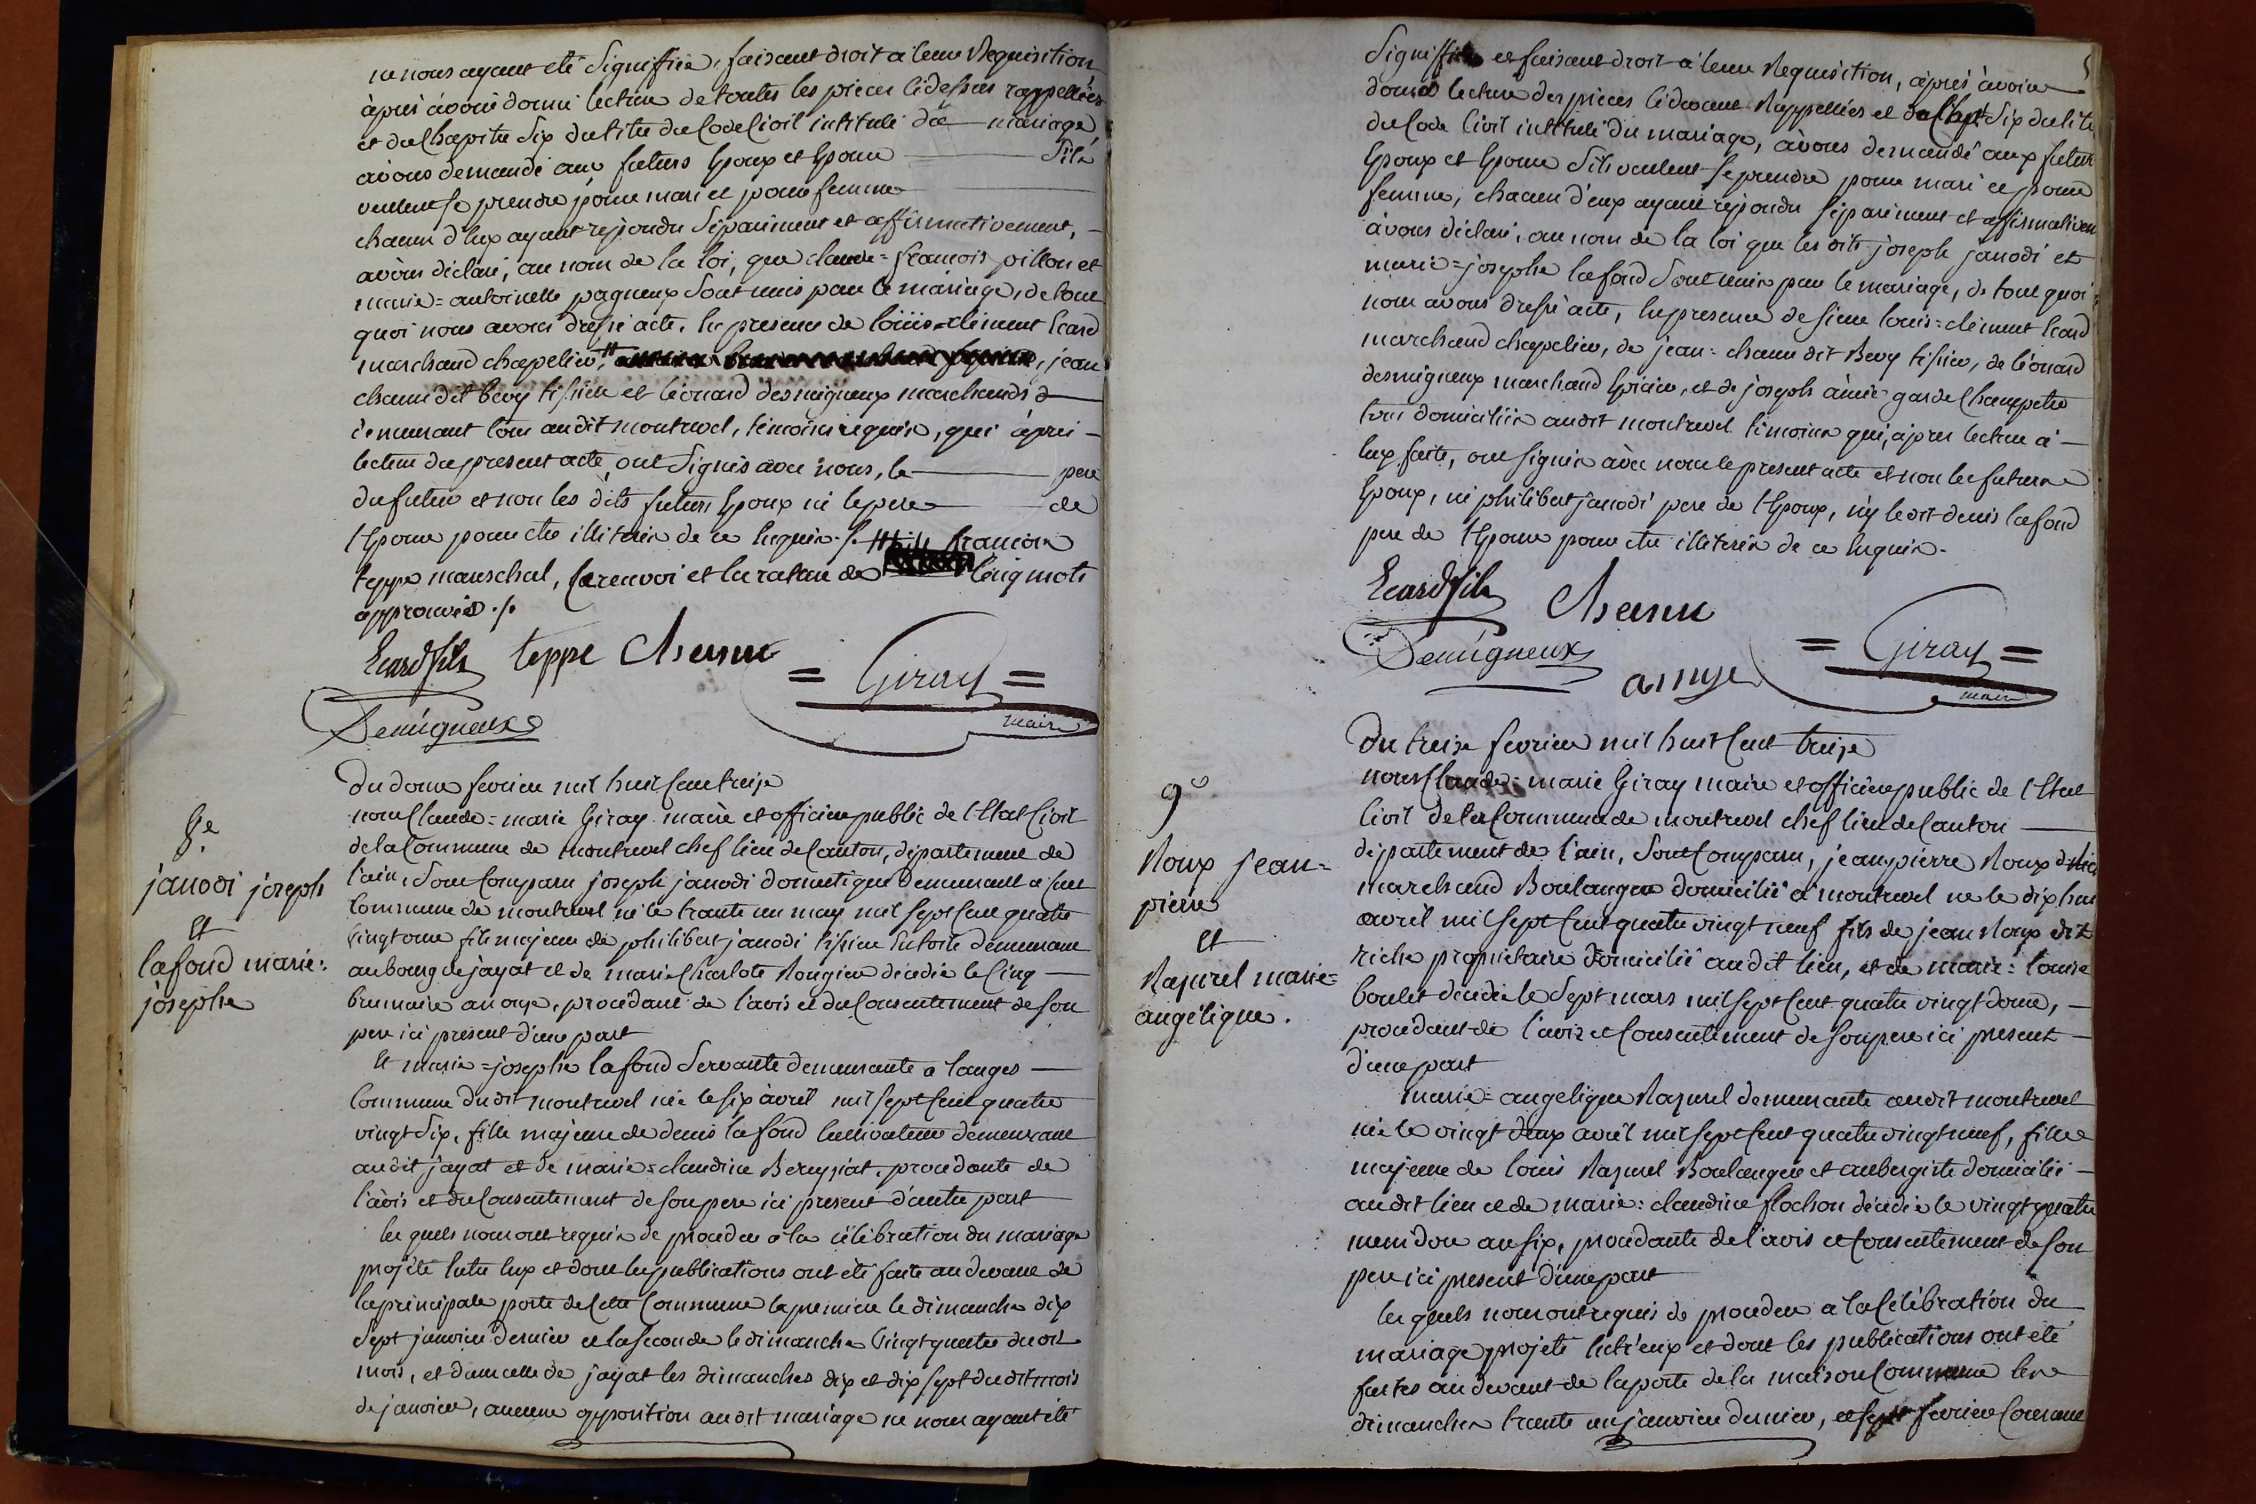 ne nous ayant eté signiffiée, faisant droit a leur Requisition
après avoir donné lecture de toutes les pieces cidessus rappellées
et du Chapitre Six du titre du Code Civil intitulé du mariage
avons demandé aux futurs Epoux et Epouse s'ils
veulent se prendre pour mari et pour femme
chacun d'Eux ayant repondu séparément et affirmativement,
avons déclaré, au nom de la loi, que claude=francois pillon et
marie=antoinette pagneux sont unis par le mariage, de tout
quoi nous avons dressé acte, En presence de loüis=clément Ecard
marchand chapelier, # jean
chanu dit bevy tissier et léonard desmigneux marchands
demeurant tous audit montrevel, témoins requis, qui après
lecture du present acte, ont signés avec nous, le pere
du futur et non les dits futurs Epoux ni le pere de
l'Epouse pour etre illiterés de ce Enquis ./. # francois
teppe mareschal, le renvoi et la rature de Cinq mots
approuvés ./.
Ecard fils teppe Chanu
= Giray =
maire
Demigneux
Du douze fevrier mil huit Cent treize
8.e
janodi joseph
et
lafond marie=
josephe
nous Claude=marie Giray maire et officier public de l'Etat Civil
de la Commune de montrevel chef lieu de Canton, département de
l'ain, Sont Comparu joseph janodi domestique demeurant a
Commune de montrevel né le trente un may mil sept Cent quatre
vingt onze fils majeur de philibert janodi tissier En toile demeurant
au bourg de jayat et de marie Charlote Rougier décédée le Cinq
brumaire an onze, procédant de l'avis et du Consentement de son
pere ici present d'une part
Et marie=josephe lafond Servante demeurante a langes
Commune dudit montrevel née le six avril mil sept Cent quatre
vingt dix, fille majeure de denis lafond Cultivateur demeurant
audit jayat et de marie=claudine Bereyziat, procédante de
l'avis et du Consentement de son pere ici present d'autre part
les quels nous ont requis de procéder a la célébration du mariage
projeté Entre Eux et dont les publications ont été faite au devant de
la principale porte de Cette Commune la premiere le dimanche dix
sept janvier dernier et la seconde le dimanche vingt quatre dudit
mois, et dans celle de jayat les dimanches dix et dix sept dudit mois
de janvier, aucune opposition audit mariage ne nous ayant été
signiffiée et faisant droit a leur Requisition, après avoir
donné lecture des pieces cidevant Rappellées et du Chap.e Six du titre
du Code Civil intitulé du mariage, avons demandé aux futurs
Epoux et Epouse s'ils veulent se prendre pour mari et pour
femme, chacun d'eux ayant repondu séparément et affirmativem
avons déclaré, au nom de la loi que les dits joseph janodi et
marie=josephe lafond sont unis par le mariage, de tout quoi
nous avons dressé acte, En presence de sieur louis=clément Ecard
marchand chapelier, de jean=chanu dit Bevy tissier, de léonard
desmigneux marchand Epicier, et de joseph amié garde Champetre
tous domiciliés audit montrevel témoins qui, après lecture a
Eux faite, ont signés avec nous le present acte et non les futurs
Epoux, ni philibert janodi pere de l'Epoux, ny le dit denis lafond
pere de l'Epouse pour etre illiterés de ce Enquis.
Ecard fils Chanu
= Giray =
maire
Demigneux
Du treize fevrier mil huit Cent treize
9.e
Roux jean=
pierre
et
Razurel marie=
angélique.
nous Claude=marie Giray maire et officier public de l'Etat
Civil de la Commune de montrevel chef lieu de Canton
département de l'ain, Sont Comparu, jean pierre Roux dit
marchand Boulanger domicilié a montrevel né le dix huit
avril mil sept Cent quatre vingt neuf fils de jean Roux dit
riche propriétaire domicilié audit lieu, et de marie=louise
boulet décédée le sept mars mil sept Cent quatre vingt douze,
procédant de l'avis et Consentement de son pere ici present
d'une part
marie=angelique Razurel demeurante audit montrevel
née le vingt deux avril mil sept Cent quatre vingt neuf, fille
majeure de louis Razurel Boulanger et aubergiste domicilié
audit lieu et de marie=claudine flochon décédée le vingt quatre
messidor an six, procédante de l'avis et Consentement de son
pere ici present d'une part
les quels nous ont requis de procéder a la Célébration du
mariage projeté Entr'eux et dont les publications ont été
faites au devant de la porte de la maison Commune les
dimanches trente un janvier dernier, et sept fevrier Courant